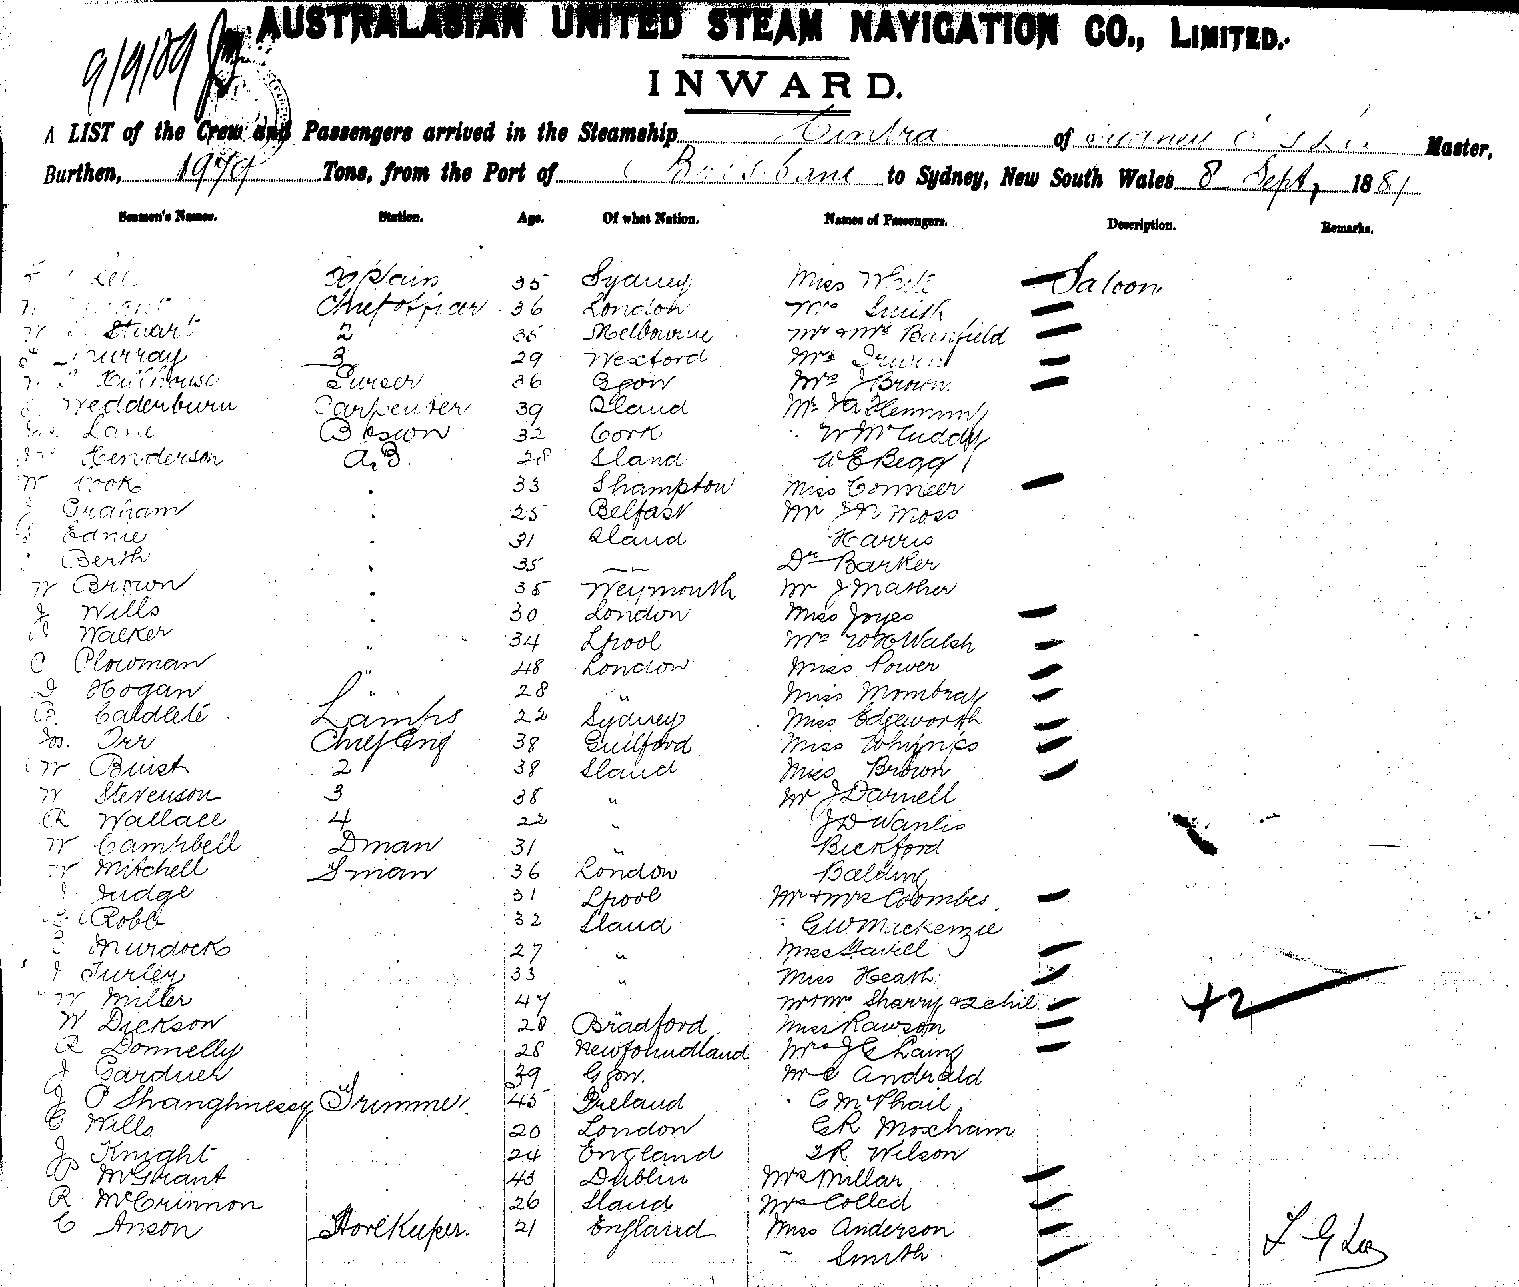 9/9/89
AUSTRALASIAN UNITED STEAM NAVIGATION CO., LIMITED.
INWARD.
A LIST of the Crew and Passengers arrived in the Steamship Cintra of Master,
Burthen, 1979 Tons, from the Port of Brisbane to Sydney, New South Wales 8 Sept, 188
Seamen's Names. Station. Age. Of what Nation. Names of Passengers. Description. Remarks.
Lee Captain 35 Sydney Miss White Saloon
Chief officer 36 London Mrs Smith
Stuart 2 35 Melbourne Mr & Mrs Banfield
Murray 3 29 Wexford Mrs Irwin
Hillhouse Purser 36 Ggow Mrs J Brown
Wedderburn Carpenter 39 Sland Mr Flemming
Lane Boson 32 Cork W McCuddy
Henderson A.B 28 Sland W E Begg
W Cook " 33 Shampton Miss Conneer
J Graham " 25 Belfast Mr Moss
Edme " 31 Sland Harris
Berth " 35 " Dr Barker
W Brown " 35 Weymouth Mr J Mather
J Wills " 30 London Miss Joyes
Walker " 34 Lpool Mrs Walsh
C Plowman " 48 London Miss Power
D Hogan " 28 " Miss Mombray
Lamps 22 Sydney Miss Edgeworth
Jas. Orr Chief Eng 38 Guilford Miss
W Buist 2 38 Sland Miss Brown
W Stevenson 3 38 " Mr J Darnell
R Wallace 4 22 " J D Wanlis
W Campbell Dman 31 " Bickford
W Mitchell Sman 36 London Balding
J Judge 31 Lpool Mr & Mrs Coombes
Robb 32 Sland G W Mackenzie
Murdock 27 " Miss
J Turley 33 " Miss Heath
W Miller 47 Mr & Mrs Sharry & 2 chil 42
W Dickson 28 Bradford Miss Rawson
R Donnelly 28 Newfoundland Mrs J C Laing
J Gardner 39 Ggow. Mr
J O Shanghnessy Trimmer 45 Ireland C McPhail
C Wills 20 London G R Moxham
J Knight 24 England T R Wilson
Jas McGrant 43 Dublin Mrs Millar
R McCrimmon 26 Sland Mrs Colled
C Anson Storekeeper. 21 England Miss Anderson
" Smith
F G Lee